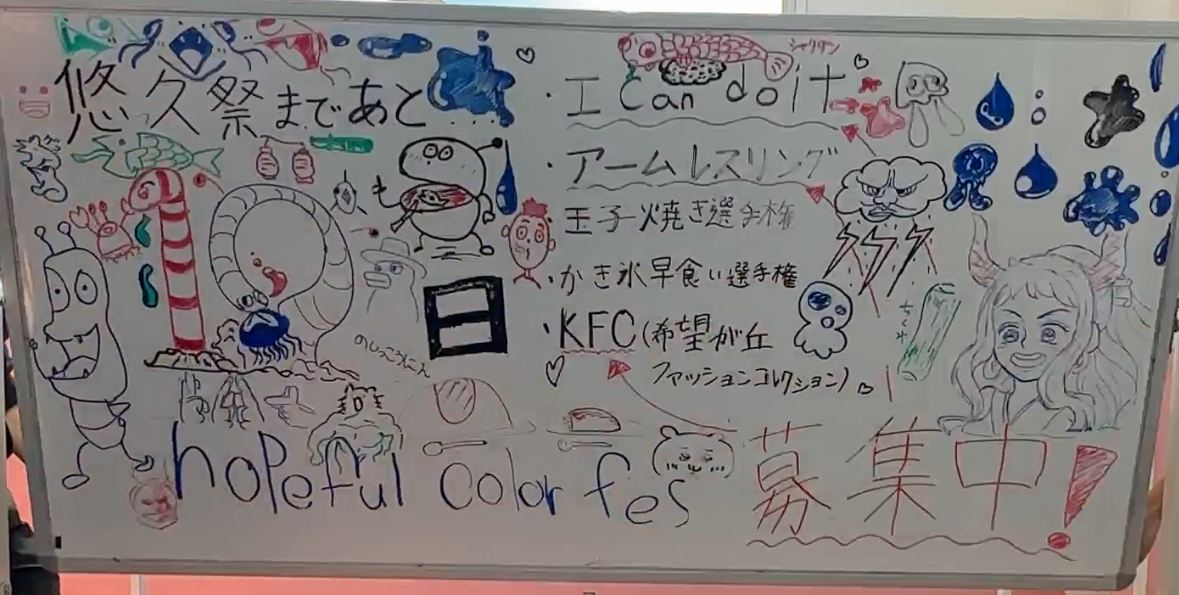 悠久祭まであと
日
シャリタツ
・工 Can do it
・アームレスリング
玉子焼き選手権
・かき氷早食い選手権
・KFC(希望が丘
ファッションコレクション)
ちくわ
のしっこうにん
hopeful color fes
募集中!